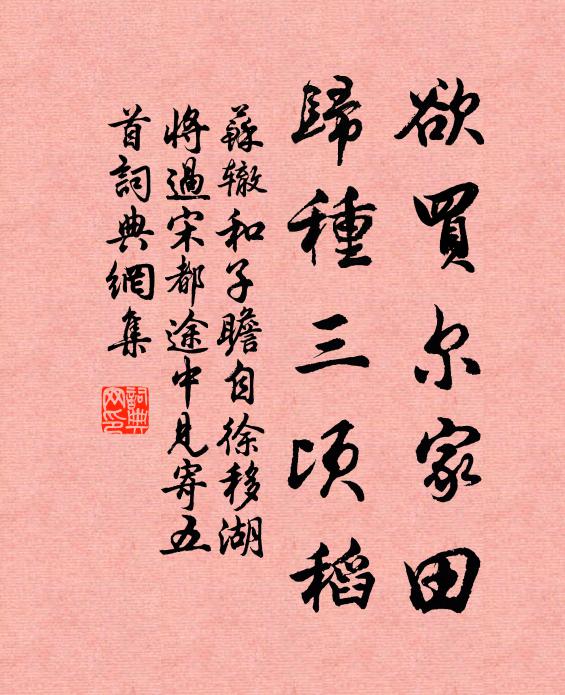 欲買尔家田
歸種三顷稻
蘇辙和子瞻自徐移湖
將過宋都途中見寄五
首詞典網集
詞典
网印